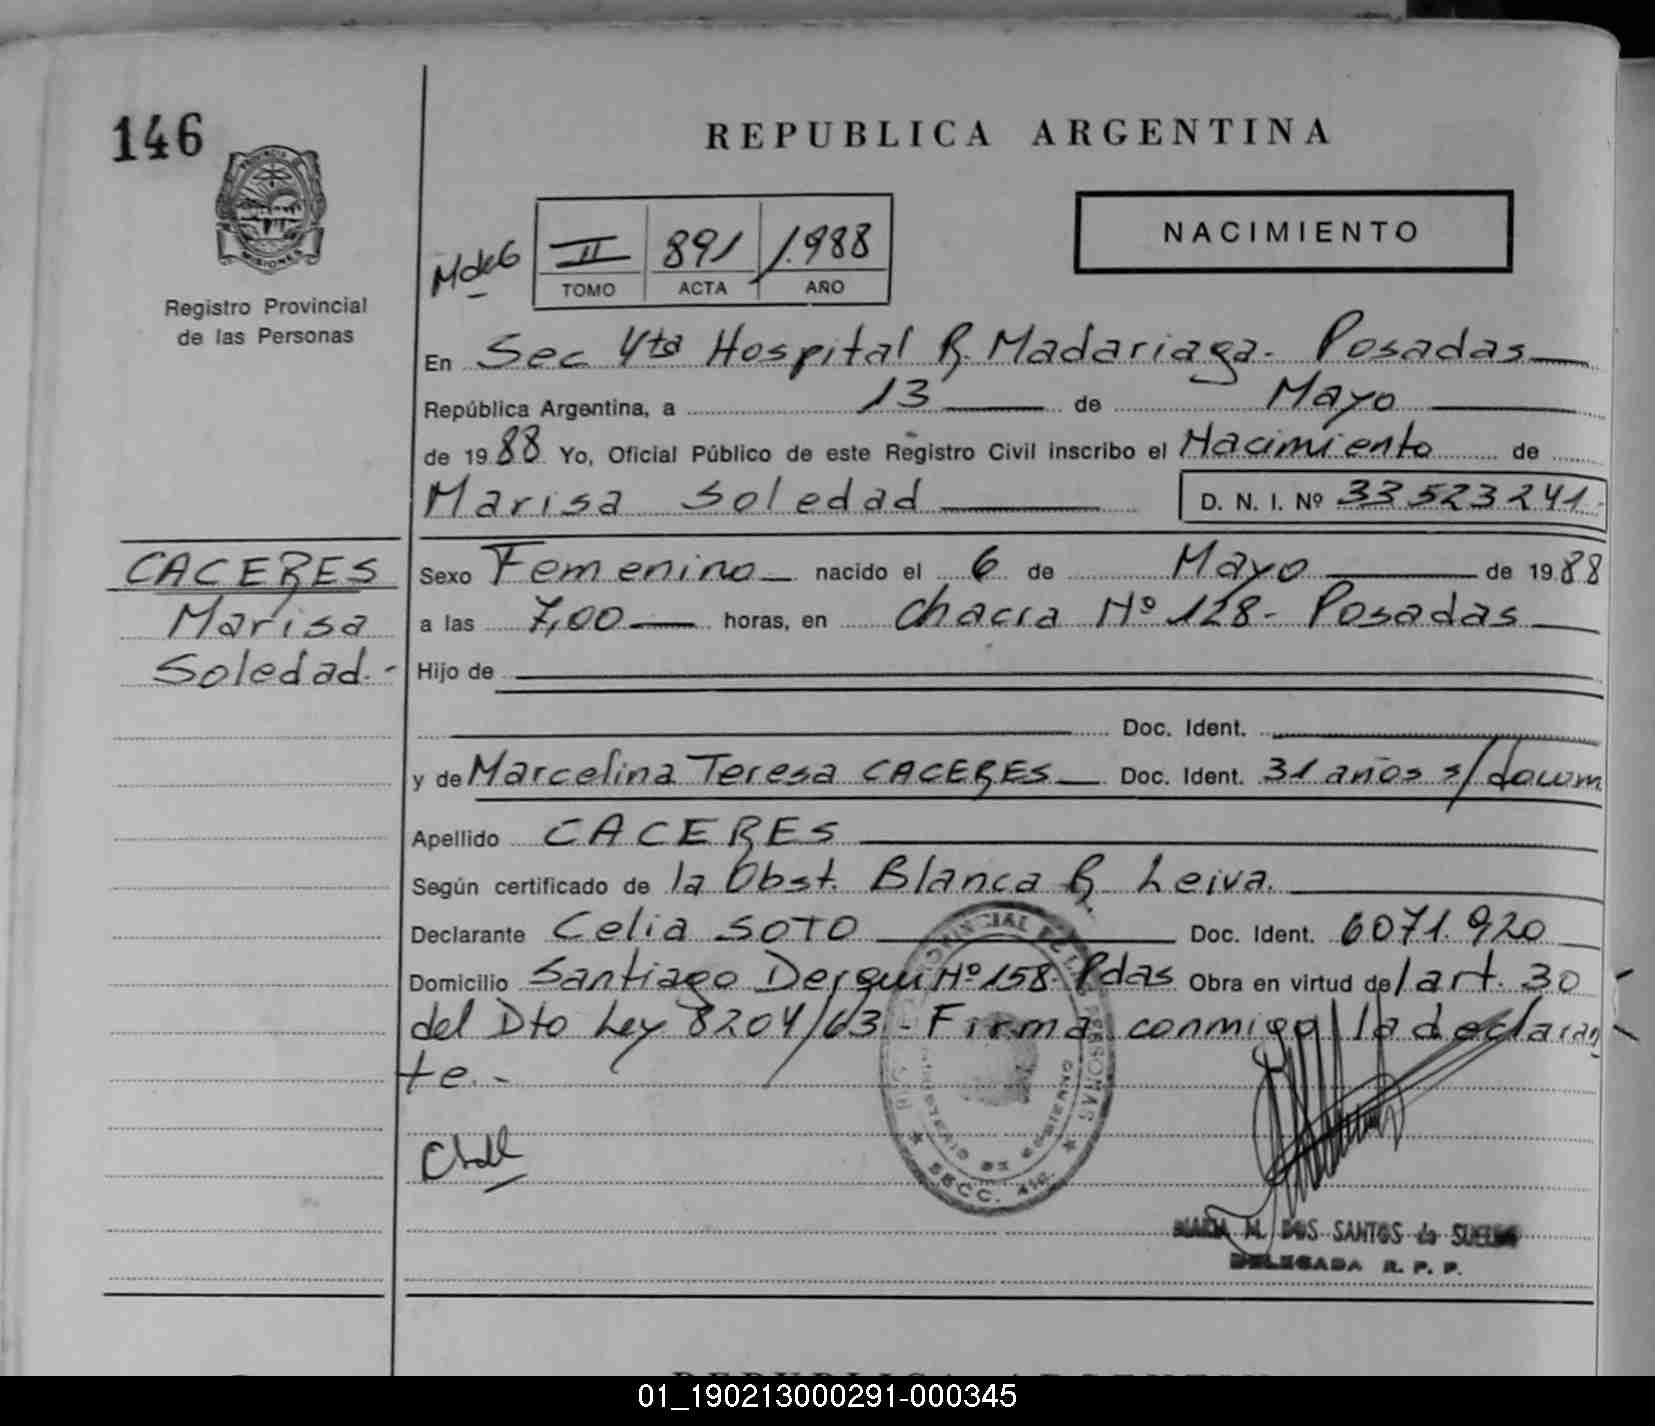 146
REPUBLICA ARGENTINA
NACIMIENTO
MISIONES
Registro Provincial
de las Personas
II 891 1.988
TOMO ACTA AÑO
En Sec 4ta Hospital R. Madariaga. Posadas
República Argentina, a 13 de Mayo
de 1988 Yo, Oficial Público de este Registro Civil inscribo el Nacimiento de
Marisa Soledad D. N. I. Nº 33523241.
CACERES
Marisa
Soledad.-
Sexo Femenino nacido el 6 de Mayo de 1988
a las 7,00 horas, en chacra Nº 128- Posadas
Hijo de
Doc. Ident.
y de Marcelina Teresa CACERES Doc. Ident. 31 años s/docum
Apellido CACERES
Según certificado de la Obst. Blanca R. Leiva.
Declarante Celia SOTO Doc. Ident. 6071.920
Domicilio Santiago Derqui Nº 158- Pdas Obra en virtud del art. 30
del Dto Ley 8204/63.- Firma conmigo la declaran
te.-
MARIA M. DOS SANTOS de
DELEGADA R. P. P.
01_190213000291-000345